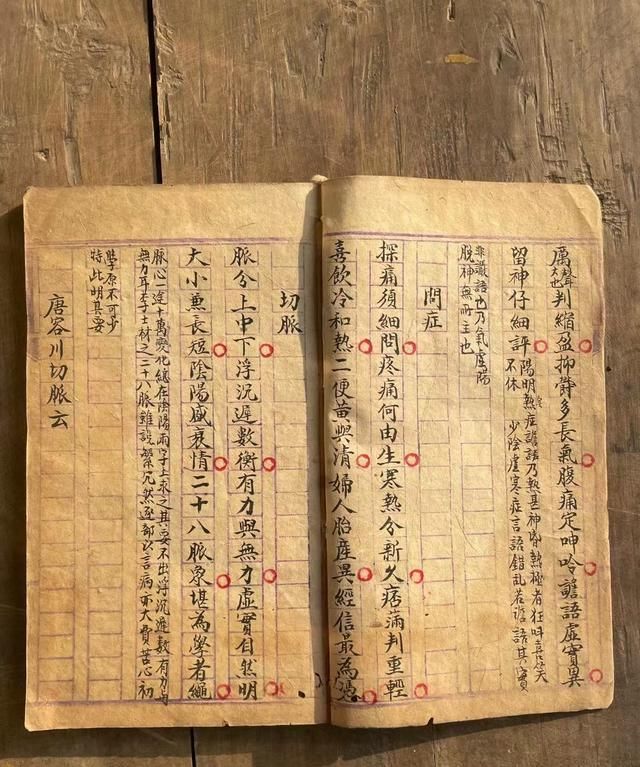 厲聲大也判縮盈抑鬱多長氣腹痛定呻吟譫語虛實異
留神仔細評
陽明熱症譫語乃熱甚神昏熱極者狂呌喜笑
不休 少陰虛寒症言語錯乱若譫語其實
非譫語也乃氣虛陽
脫神無所主也
問症
探痛須細問疼痛何由生寒熱分新久痞滿判重輕
喜飲冷和熱二便黃與清婦人胎產異經信最為憑
切脈
脈分上中下浮沉遲數衡有力與無力虛實自然明
大小兼長短陰陽盛衰情二十八脈象堪為學者繩
脈心一途十萬變化總在陰陽兩字上求之其要不出浮沉遲數有力與
無力耳李士材之二十八脈雖說繁冗然逐部以言病亦大費苦心初
學原不可少
特此明其要
唐容川切脈云